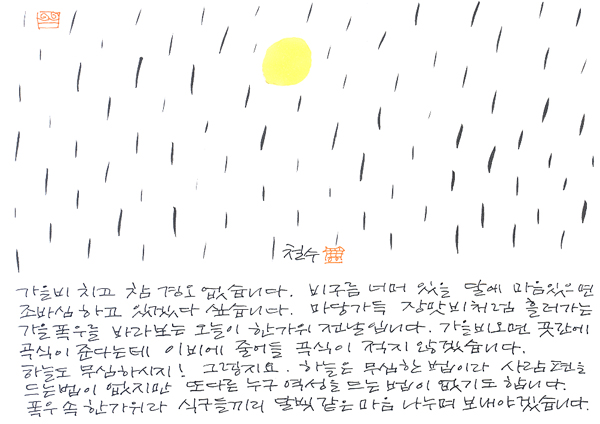 철수
가을비 치고 참 경오 없습니다. 비구름 너머 있을 달에 마음있으면
조바심 하고 있겠다 싶습니다. 마당가득 장맛비처럼 흘러가는
가을폭우를 바라보는 오늘이 한가위 전날입니다. 가을비오면 곳간에
곡식이 준다는데 이비에 줄어들 곡식이 적지 않겠습니다.
하늘도 무심하시지! 그럴지요. 하늘은 무심한 법이라 사람편을
드는법이 없지만 또다른 누구 역성을 드는 법이 없기도 합니다.
폭우속 한가위라 식구들끼리 달빛같은 마음 나누며 보내야겠습니다.